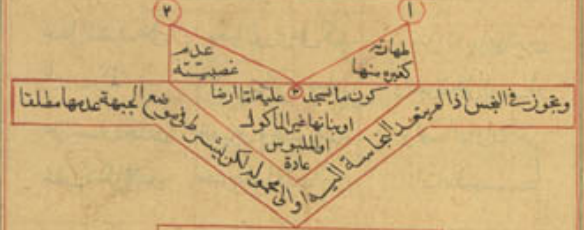 ١
٢
طهارته
كغيره منها
عدم
غصبيته
٣
كون ما يسجد عليه اما ارضا
او نباتها غير المأكول
او الملبوس
عادة
ويجوز في النجس اذا لم يتعد النجاسة اليه او الى محموله لكن يشترط في موضع الجبهة عدمها مطلقا